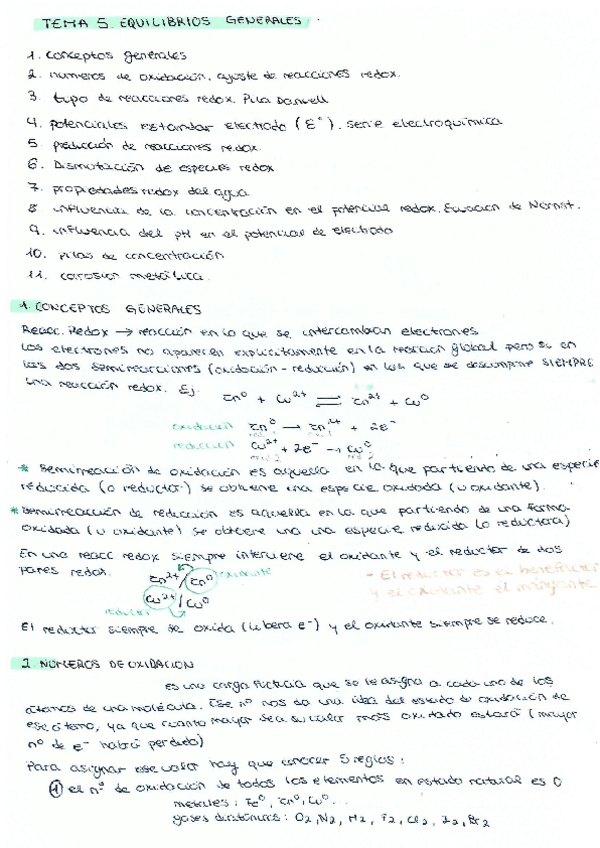 TEMA 5. EQUILIBRIOS GENERALES
1. conceptos generales
2. numeros de oxidación, ajuste de reacciones redox.
3. tipo de reacciones redox. Pila Daniell
4. potenciales estandar electrodo (E°). serie electroquimica
5. predicción de reacciones redox.
6. Dismutación de especies redox
7. propiedades redox del agua
8. influencia de la concentración en el potencial redox. Ecuación de Nernst.
9. influencia del pH en el potencial de electrodo
10. pilas de concentración
11. corrosion metálica.
1. CONCEPTOS GENERALES
Reacc. Redox → reacción en la que se intercambian electrones
Los electrones no aparecen explicitamente en la reacción global pero si en
las dos semirreacciones (oxidación - reducción) en las que se descompone SIEMPRE
una reacción redox. Ej.
Zn⁰ + Cu²⁺ ⇌ Zn²⁺ + Cu⁰
oxidación Zn⁰ → Zn²⁺ + 2e⁻
reducción Cu²⁺ + 2e⁻ → Cu⁰
* Semirreacción de oxidación es aquella en la que partiendo de una especie
reducida (o reductor) se obtiene una especie oxidada (u oxidante).
* Semirreacción de reducción es aquella en la que partiendo de una forma
oxidada (u oxidante) se obtiene una una especie reducida (o reductora)
En una reacc redox siempre interviene el oxidante y el reductor de dos
pares redox.
Zn²⁺/Zn⁰ oxidante
Cu²⁺/Cu⁰
reductor
- El reductor es el
y el oxidante el
El reductor siempre se oxida (libera e⁻) y el oxidante siempre se reduce.
2 NÚMEROS DE OXIDACION
es una carga ficticia que se le asigna a cada uno de los
átomos de una molécula. Ese nº nos da una idea del estado de oxidación de
ese átomo, ya que cuanto mayor sea su valor más oxidado estará (mayor
nº de e⁻ habrá perdido)
Para asignar ese valor hay que conocer 5 reglas:
① el nº de oxidación de todos los elementos en estado natural es 0
metales: Fe⁰, Zn⁰, Cu⁰...
gases diatómicos: O₂, N₂, H₂, F₂, Cl₂, I₂, Br₂